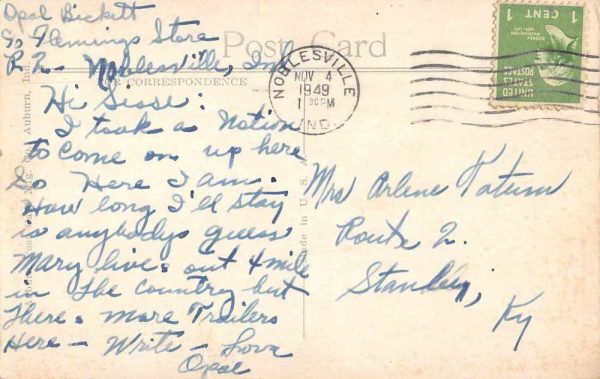 Opal Bickett
c/o Flemings Store
R 2 - Noblesville, Ind
Post Card
CORRESPONDENCE
Hi Sease:
I took a Notion
to come on up here
so Here I am.
How long I'll stay
is anybodys guess
Mary lives out 4 mile
in the country but
There's more Trailers
Here - Write - Love
Opal
Auburn, Ind.
Made in U.S.A.
NOBLESVILLE
NOV 4
1949
IND.
UNITED
STATES
POSTAGE
1 CENT 1
Mrs Arlene Tatum
Route 2.
Stanley,
Ky